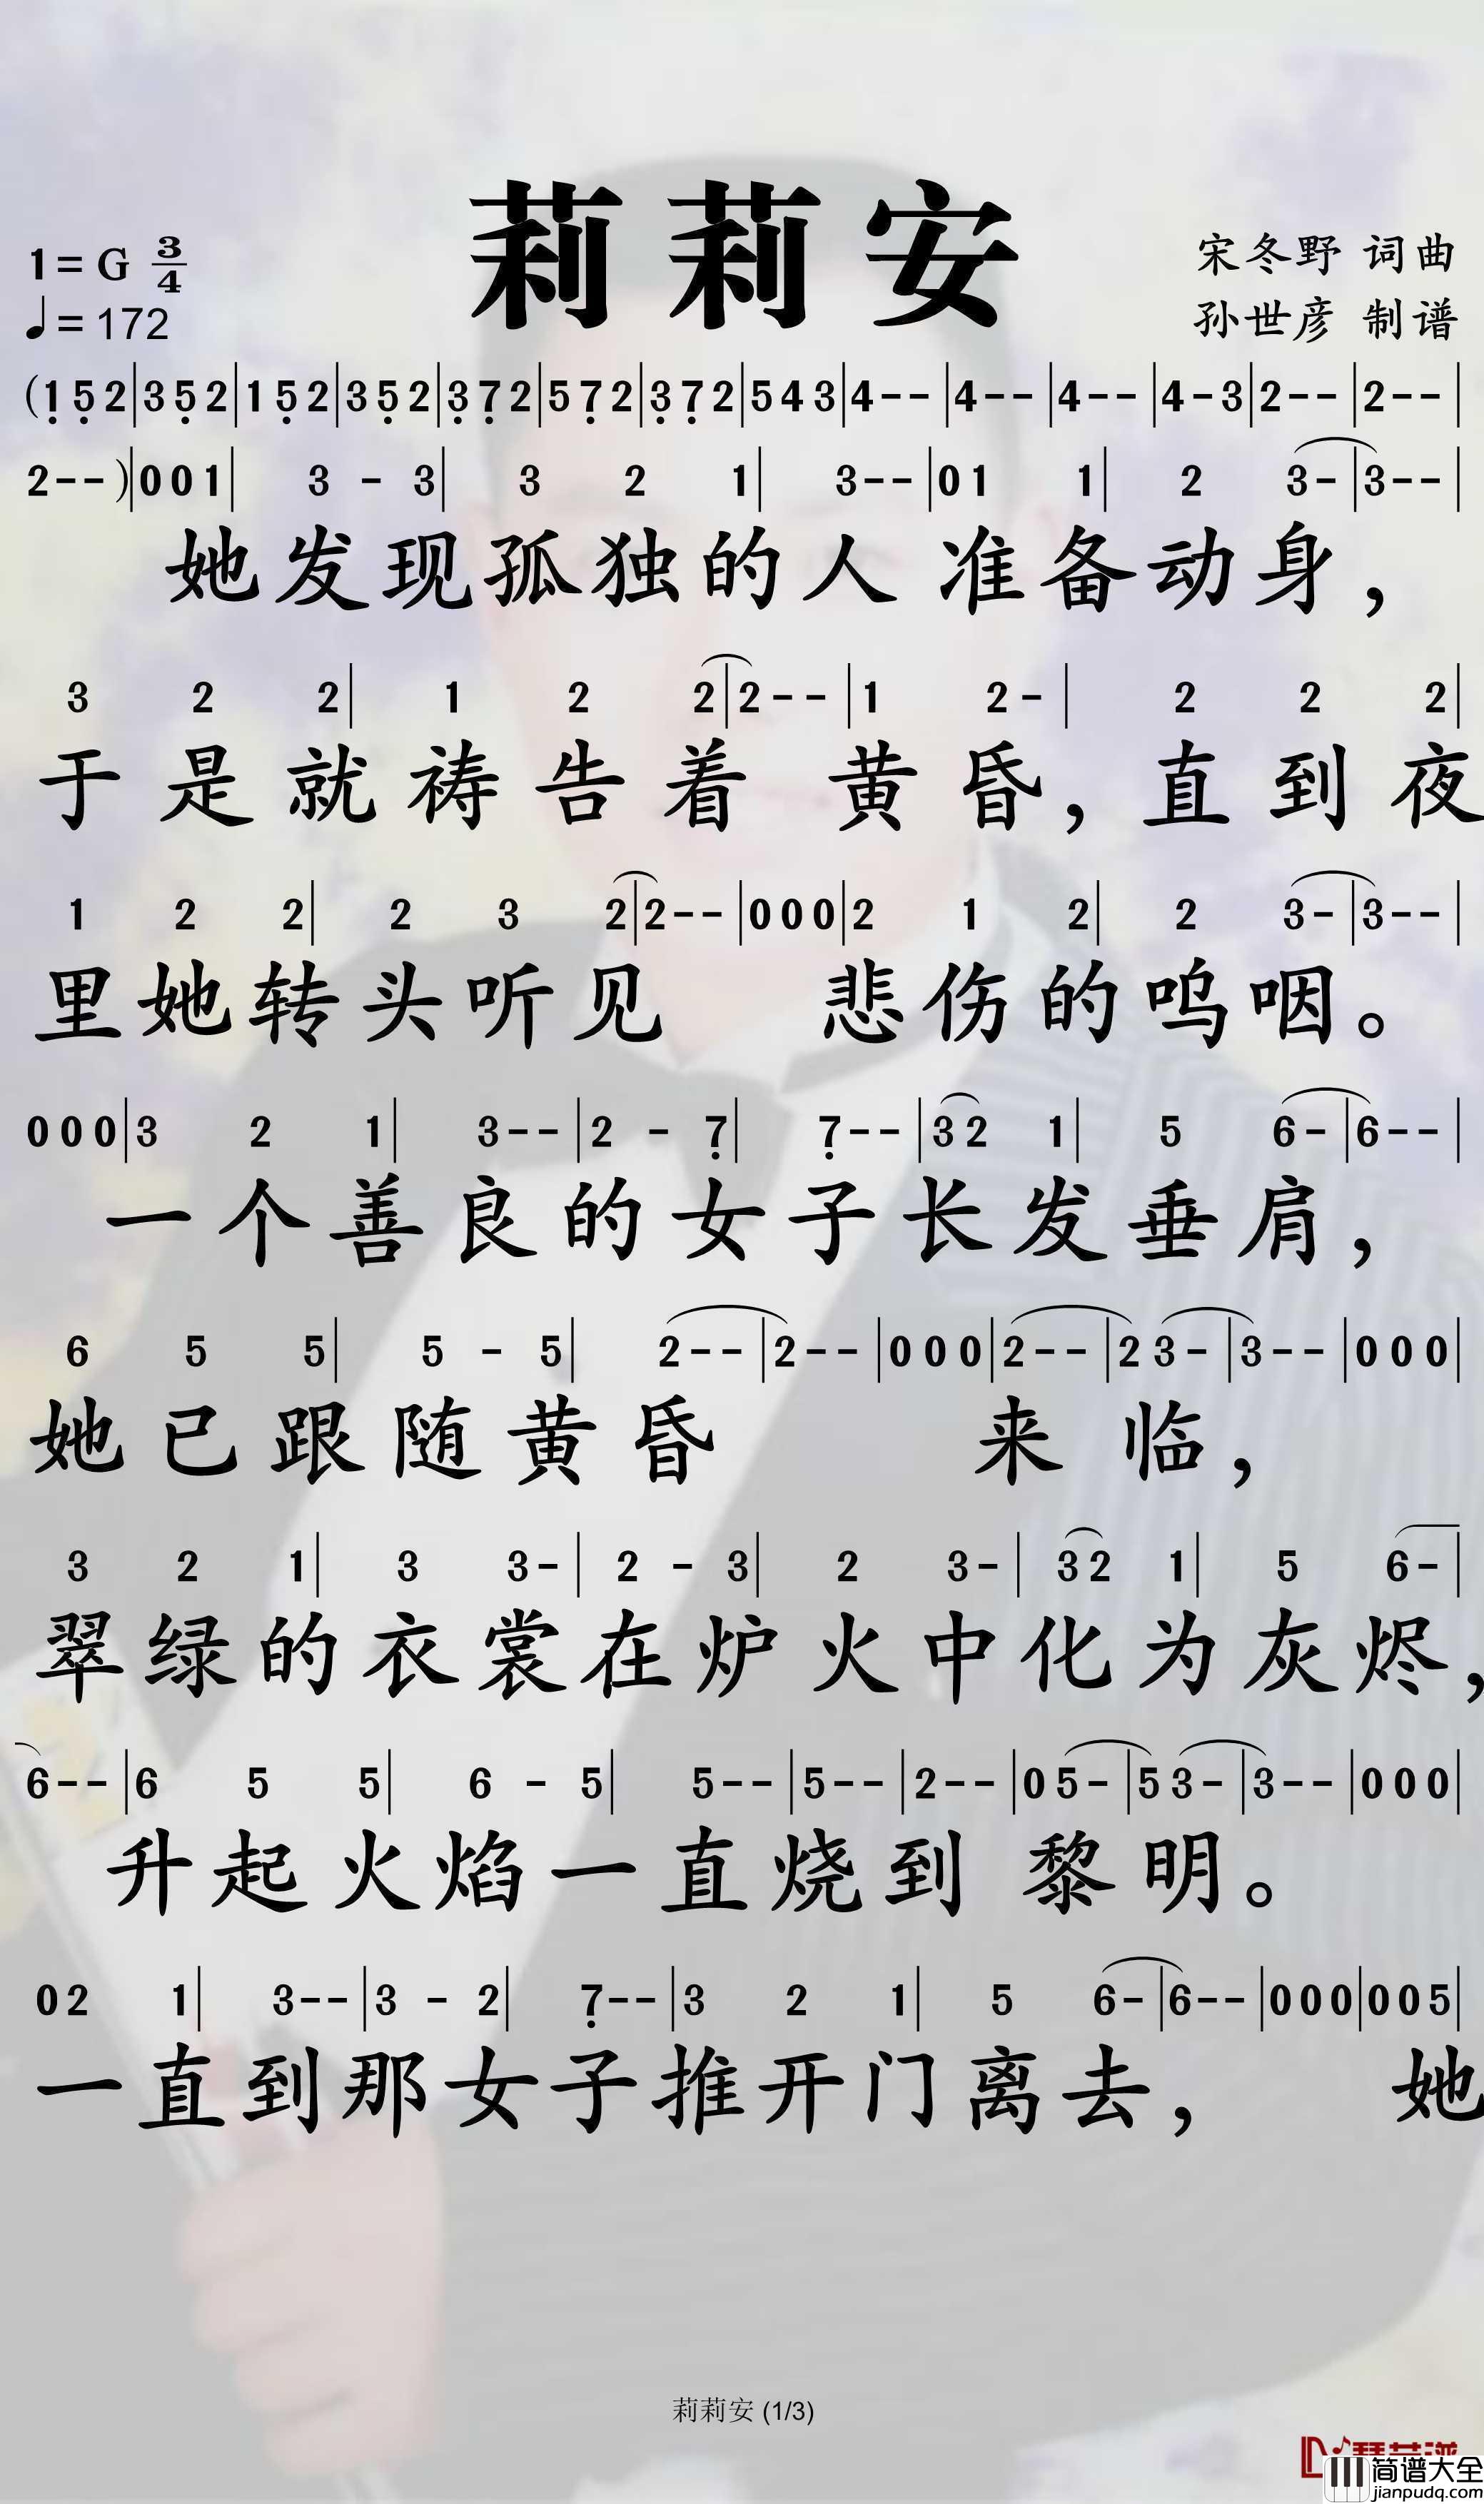 莉莉安
1=G 3/4
♩=172
宋冬野 词曲
孙世彦 制谱
(1̣ 5̣ 2|3 5̣ 2|1 5̣ 2|3 5̣ 2|3̣ 7̣ 2|5 7̣ 2|3̣ 7̣ 2|5 4 3|4--|4--|4--|4-3|2--|2--|
2--)|0 0 1|3 - 3|3 2 1|3--|0 1 1|2 3-|3--|
她发现孤独的人 准备动身，
3 2 2|1 2 2|2--|1 2-|2 2 2|
于是就祷告着 黄昏，直到夜
1 2 2|2 3 2|2--|0 0 0|2 1 2|2 3-|3--|
里她转头听见 悲伤的呜咽。
0 0 0|3 2 1|3--|2 - 7̣|7̣--|3 2 1|5 6-|6--|
一个善良的女子长发垂肩，
6 5 5|5 - 5|2--|2--|0 0 0|2--|2 3-|3--|0 0 0|
她已跟随黄昏 来临，
3 2 1|3 3-|2 - 3|2 3-|3 2 1|5 6-|
翠绿的衣裳在炉火中化为灰烬，
6--|6 5 5|6 - 5|5--|5--|2--|0 5-|5 3-|3--|0 0 0|
升起火焰一直烧到 黎明。
0 2 1|3--|3 - 2|7̣--|3 2 1|5 6-|6--|0 0 0|0 0 5|
一直到那女子推开门离去， 她
莉莉安 (1/3)
简谱大全
jianpudq.com